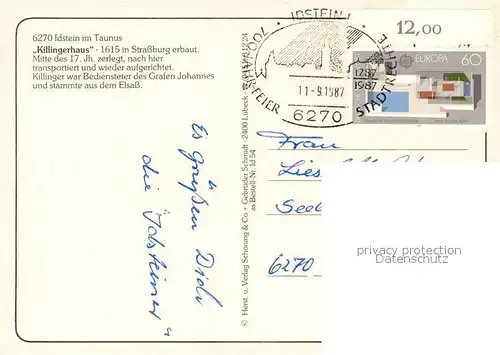 6270 Idstein im Taunus
„Killingerhaus" · 1615 in Straßburg erbaut.
Mitte des 17. Jh. zerlegt, nach hier
transportiert und wieder aufgerichtet.
Killinger war Bediensteter des Grafen Johannes
und stammte aus dem Elsaß.
12,00
· IDSTEIN ·
700
STADTRECHTE
1287
1987
11-9.1987
6270
EUROPA 60
© Herst. u. Verlag Schöning & Co + Gebrüder Schmidt · 2400 Lübeck ·
as Bestell-Nr. Id 54
Es grüßen Dich
„die Idsteiner"
Frau
Lies
Seel
6270
privacy protection